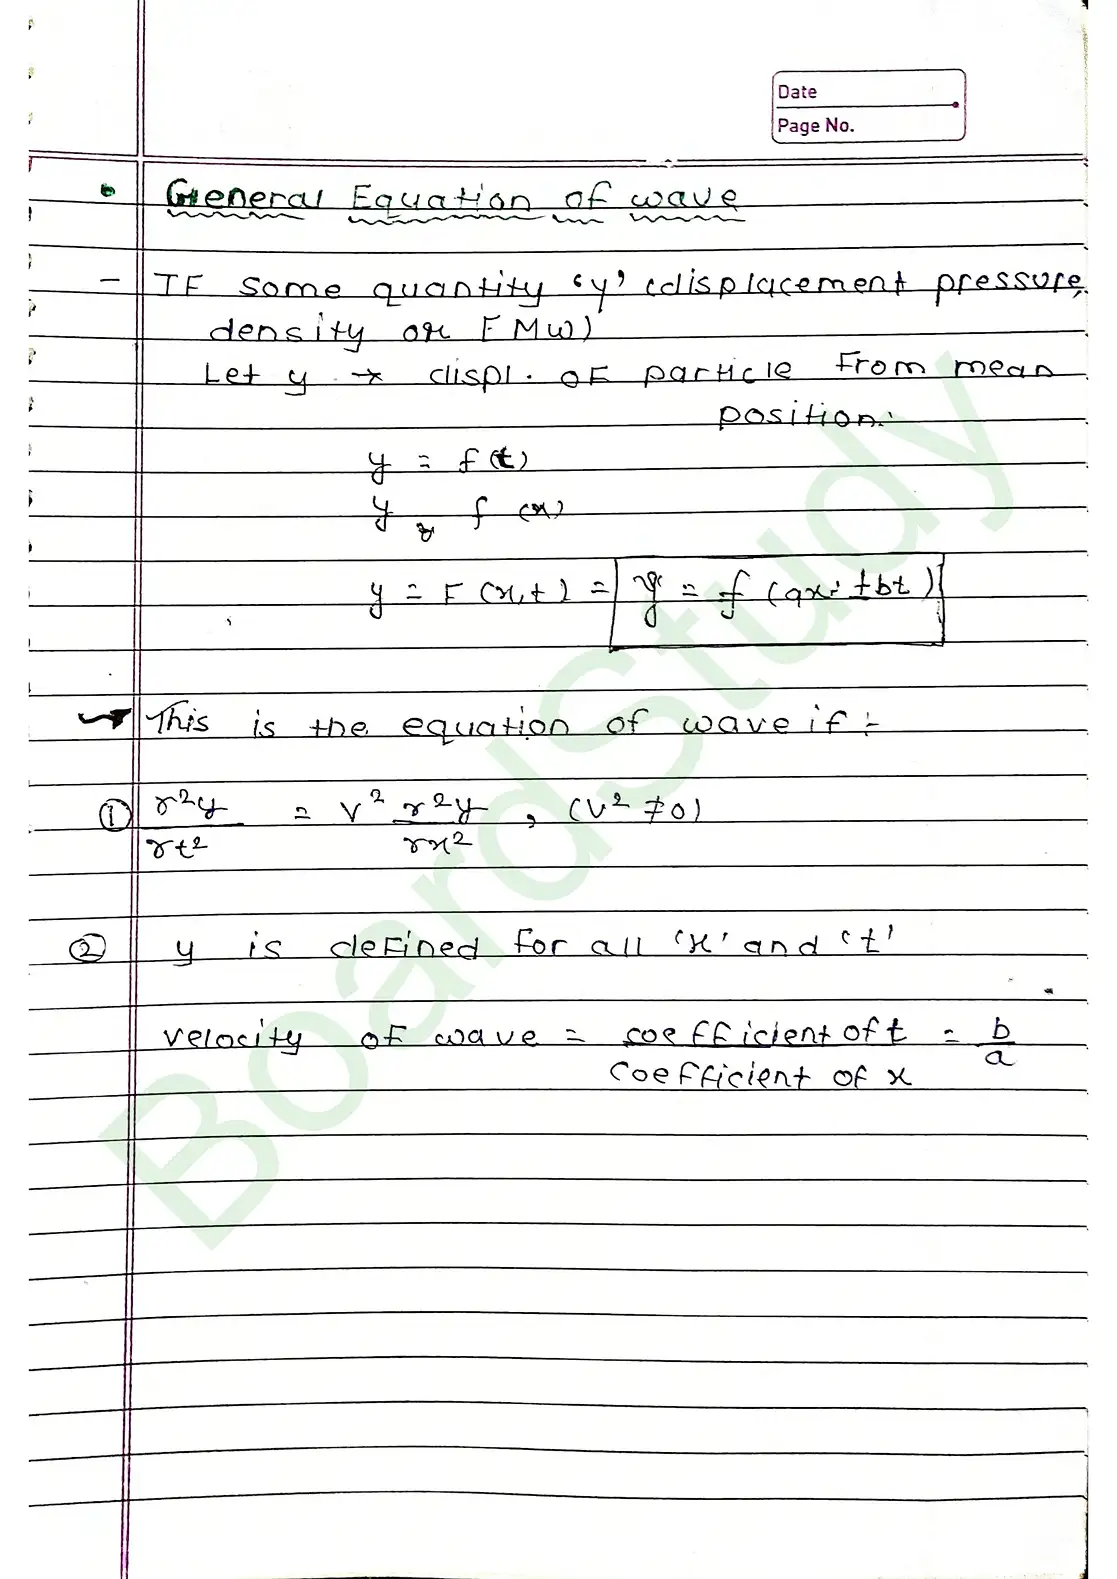 Date
Page No.
• General Equation of wave
- IF some quantity 'y' (displacement pressure,
density or EMW)
Let y → displ. of particle From mean
position.
y = f(t)
y = f (x)
y = F (x,t) = y = f (ax ± bt)
This is the equation of wave if :-
① r²y/rt² = v² r²y/rx² , (v² ≠ 0)
② y is deFined for all 'x' and 't'
velocity oF wave = coefficient of t / coefficient of x = b/a
BoardStudy